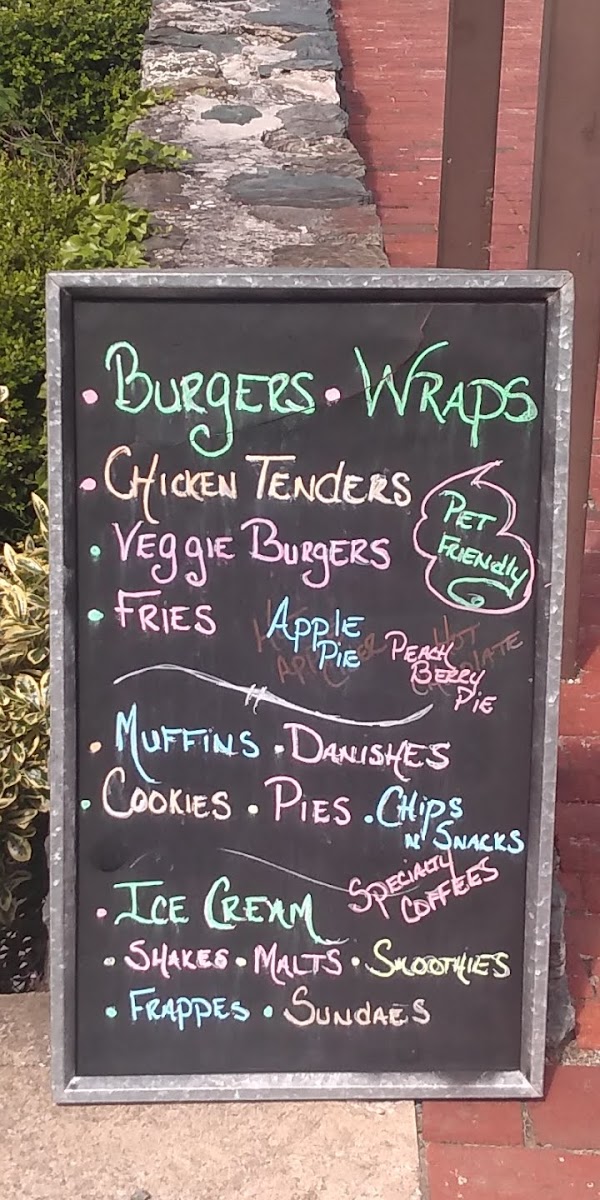 • BURGERS • WRAPS
• CHICKEN TENDERS
PET
FRIENDLY
• VEGGIE BURGERS
• FRIES
APPLE
PIE
HOT
APPLE CIDER
PEACH
BERRY
PIE
HOT
CHOCOLATE
• MUFFINS • DANISHES
• COOKIES • PIES • CHIPS
N' SNACKS
SPECIALTY
COFFEES
• ICE CREAM
• SHAKES • MALTS • SMOOTHIES
• FRAPPES • SUNDAES